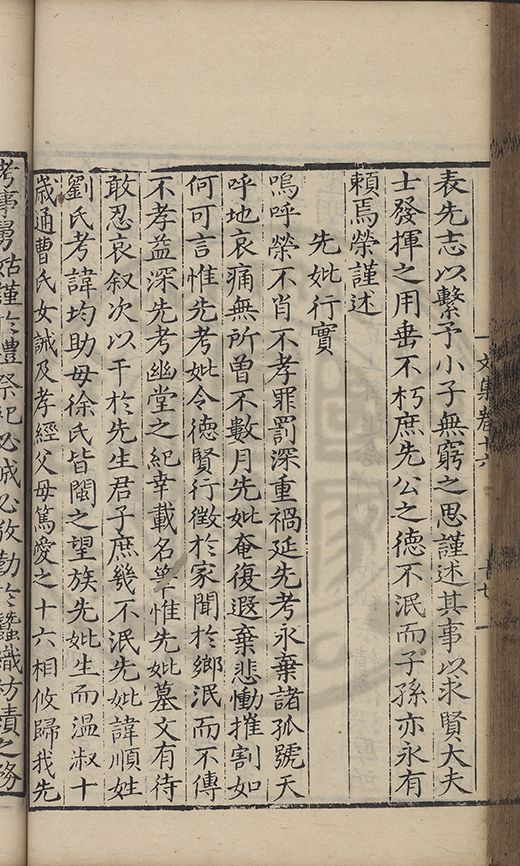 表先志以繫予小子無窮之思謹述其事以求賢大夫
士發揮之用垂不朽庶先公之德不泯而子孫亦永有
賴焉榮謹述
先妣行實
嗚呼榮不肖不孝罪罰深重禍延先考永棄諸孤號天
呼地哀痛無所曾不數月先妣奄復遐棄悲慟摧割如
何可言惟先考妣令德賢行徵於家聞於鄉泯而不傳
不孝益深先考幽堂之紀幸載名筆惟先妣墓文有待
敢忍哀叙次以干於先生君子庶幾不泯先妣諱順姓
劉氏考諱均助母徐氏皆閩之望族先妣生而温淑十
歲通曹氏女誡及孝經父母篤愛之十六相攸歸我先
考事舅姑謹於禮祭祀必誠必敬勤於蠶織紡績之務
文集卷十六
十七